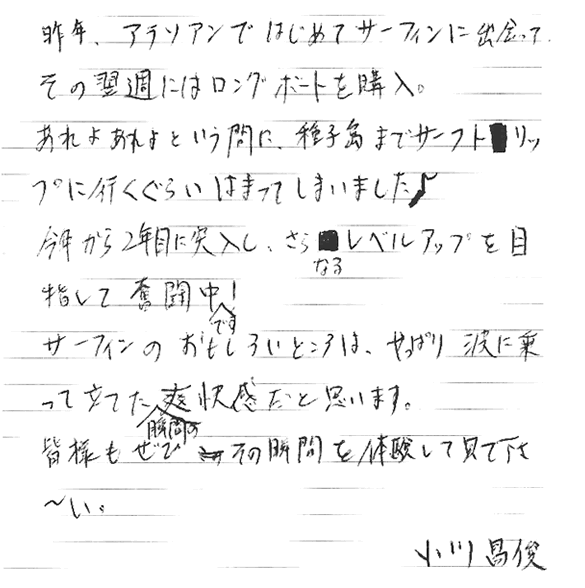 昨年、アラソアンではじめてサーフィンに出会って
その翌週にはロングボートを購入。
あれよあれよという間に、種子島までサーフトリッ
プに行くぐらいはまってしまいました♪
今年から2年目に突入し、さらなるレベルアップを目
指して奮闘中です!
サーフィンのおもしろいところは、やっぱり波に乗
って立てた瞬間の爽快感だと思います。
皆様もぜひその瞬間を体験して見て下さ
〜い。
小川昌俊